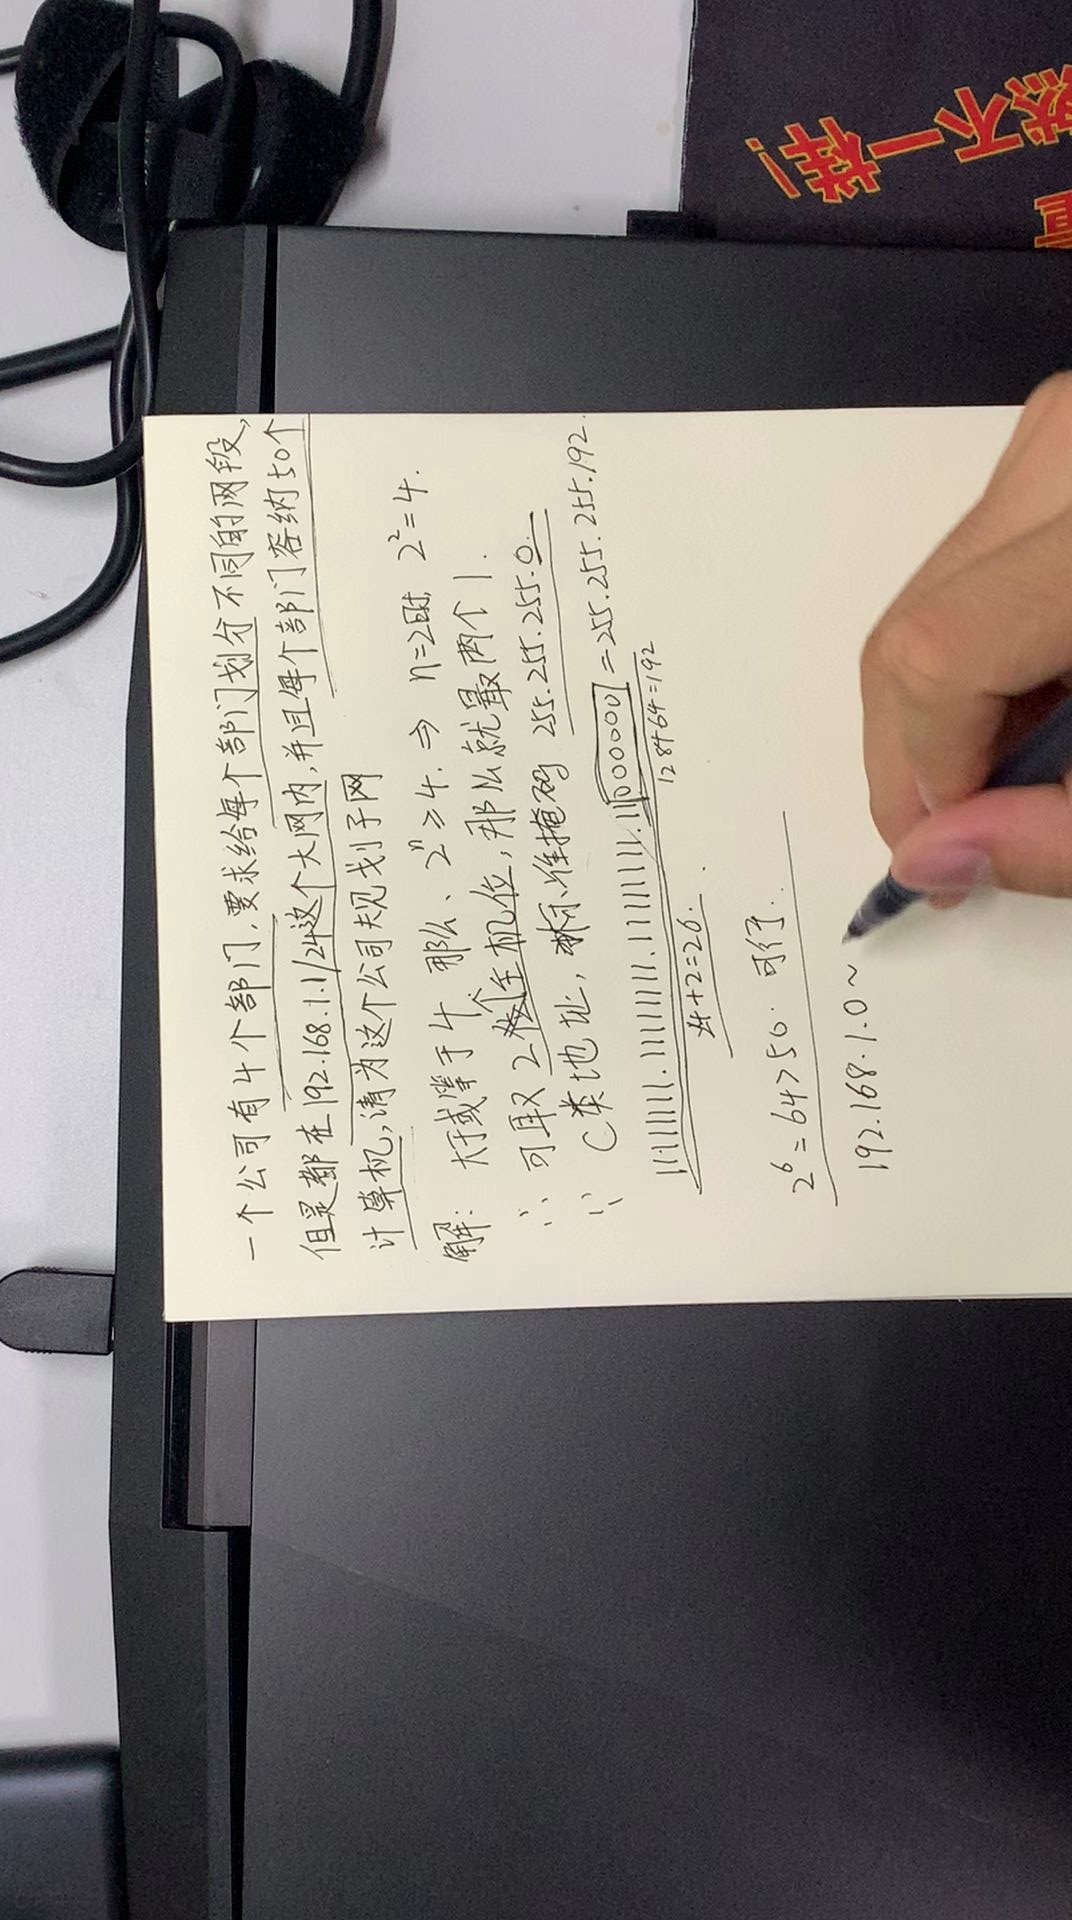 一个公司有4个部门,要求给每个部门划分不同的网段,
但是都在192.168.1.1/24这个大网内,并且每个部门容纳50个
计算机,请为这个公司规划子网
解: 大于或等于4 那么、2ⁿ≥4. ⇒ n=2时, 2²=4.
∵ 可取2个主机位,那么就最两个1.
∵ C类地址,标准掩码 255.255.255.0.
11111111.11111111.11111111.11000000=255.255.255.192.
128+64=192
24+2=26.
2⁶=64>50. 可行.
192.168.1.0~
然不一样!